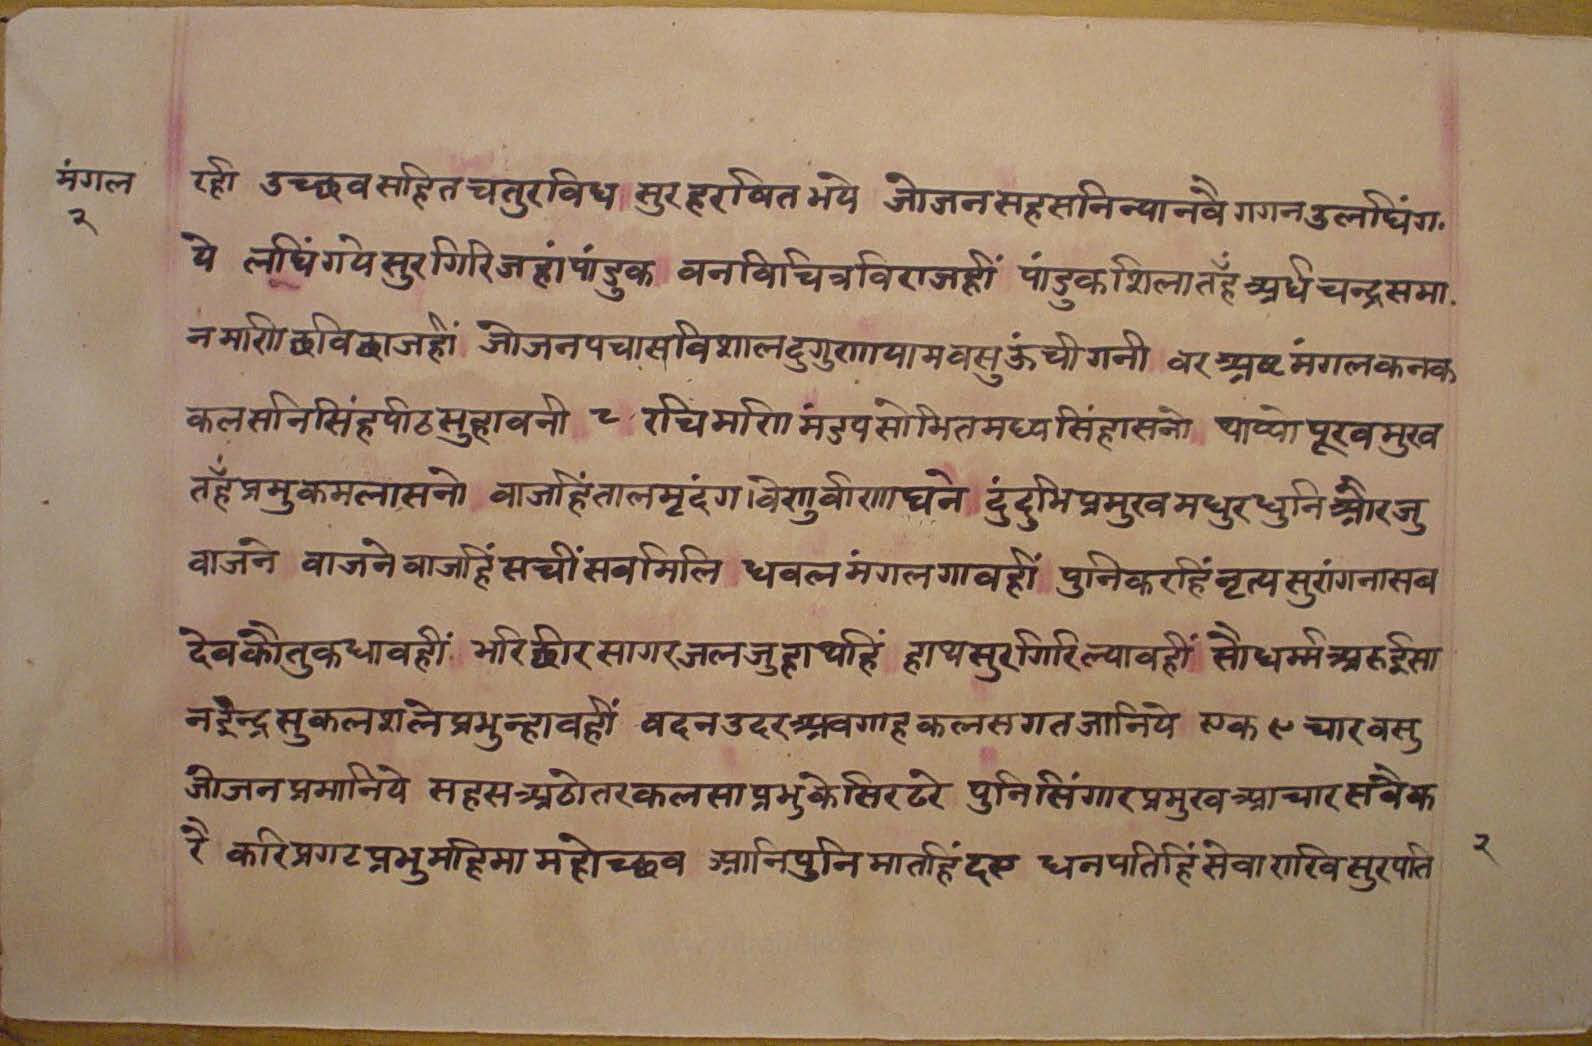 मंगल
२
रही उच्छव सहित चतुरविध सुर हरषित भये जोजन सहस निन्यानवै गगन उलघिं ग.
ये लघिं गये सुरगिरि जहां पांडुक वन विचित्र विराजहीं पांडुक शिला तहँ अर्ध चन्द्र समा.
न मणि छवि छाजहीं जोजन पचास विशाल दुगुणायाम वसु ऊंची गनी वर अष्ट मंगल कनक
कलसनि सिंहपीठ सुहावनी २ रचि मणि मंडप सोभित मध्य सिंहासनो थाप्यो पूरव मुख
तहँ प्रभु कमलासनो वाजहिं ताल मृदंग वेणु वीणा घने दुंदुभि प्रमुख मधुर धुनि और जु
वाजने वाजने वाजहिं सचीं सव मिलि धवल मंगल गावहीं पुनि करहिं नृत्य सुरांगना सब
देव कौतुक धावहीं भरि छीर सागर जल जु हाथहिं हाथ सुरगिरि ल्यावहीं सौधर्म्म अरु ईसा
न इन्द्र सु कलश ले प्रभु न्हावहीं वदन उदर अवगाह कलस गत जानिये एक ९ चार वसु
जोजन प्रमानिये सहस अठोतर कलसा प्रभु के सिर ढरे पुनि सिंगार प्रमुख आचार सवै क
रै करि प्रगट प्रभु महिमा महोच्छव आनि पुनि मातहिं दए धनपतिहिं सेवा राखि सुरपति
२